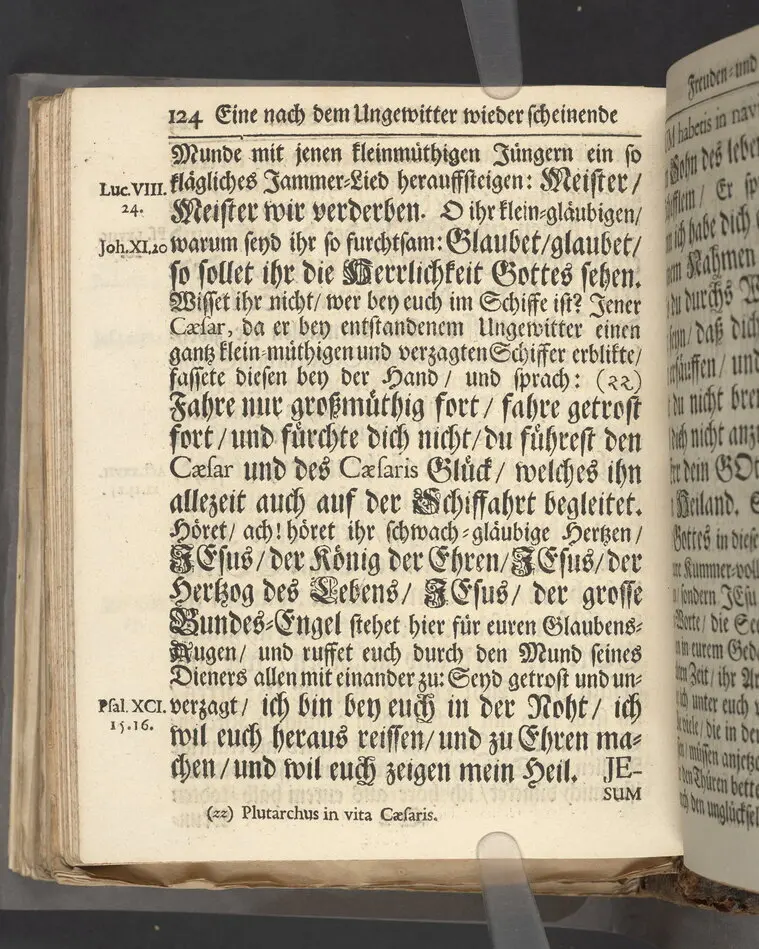 124 Eine nach dem Ungewitter wieder scheinende
Munde mit jenen kleinmüthigen Jüngern ein so
Luc. VIII. 24. klägliches Jammer-Lied herauffsteigen: Meister/
Meister wir verderben. O ihr klein-gläubigen/
Joh. XI. 20 warum seyd ihr so furchtsam: Glaubet/glaubet/
so sollet ihr die Herrlichkeit Gottes sehen.
Wisset ihr nicht/ wer bey euch im Schiffe ist? Jener
Cæsar, da er bey entstandenem Ungewitter einen
gantz klein-müthigen und verzagten Schiffer erblikte/
fassete diesen bey der Hand/ und sprach: (zz)
Fahre nur großmüthig fort/ fahre getrost
fort/und fürchte dich nicht/du führest den
Cæsar und des Cæsaris Glück/ welches ihn
allezeit auch auf der Schiffahrt begleitet.
Höret/ ach! höret ihr schwach-gläubige Hertzen/
JEsus/der König der Ehren/JEsus/der
Hertzog des Lebens/ JEsus/ der grosse
Bundes-Engel stehet hier für euren Glaubens-
Augen/ und ruffet euch durch den Mund seines
Dieners allen mit einander zu: Seyd getrost und un-
Psal. XCI. 15.16. verzagt/ ich bin bey euch in der Noht/ ich
wil euch heraus reissen/und zu Ehren ma-
chen/und wil euch zeigen mein Heil. JE-
SUM
(zz) Plutarchus in vita Cæsaris.
Freuden-und
habetis in nav
Sohn des lebe
Er sp
ich habe dich
Nahmen
du durchs W
seyn/ daß dich
ersäuffen/ und
du nicht bre
dich nicht anz
dein GOt
Heiland.
Gottes in diese
Kummer-voll
sondern JEsu
Worte/ die See
in eurem Ged
Zeit/ ihr Ar
ich unter euch
viele/ die in de
müssen anjetzo
Thüren bette
den unglücksel